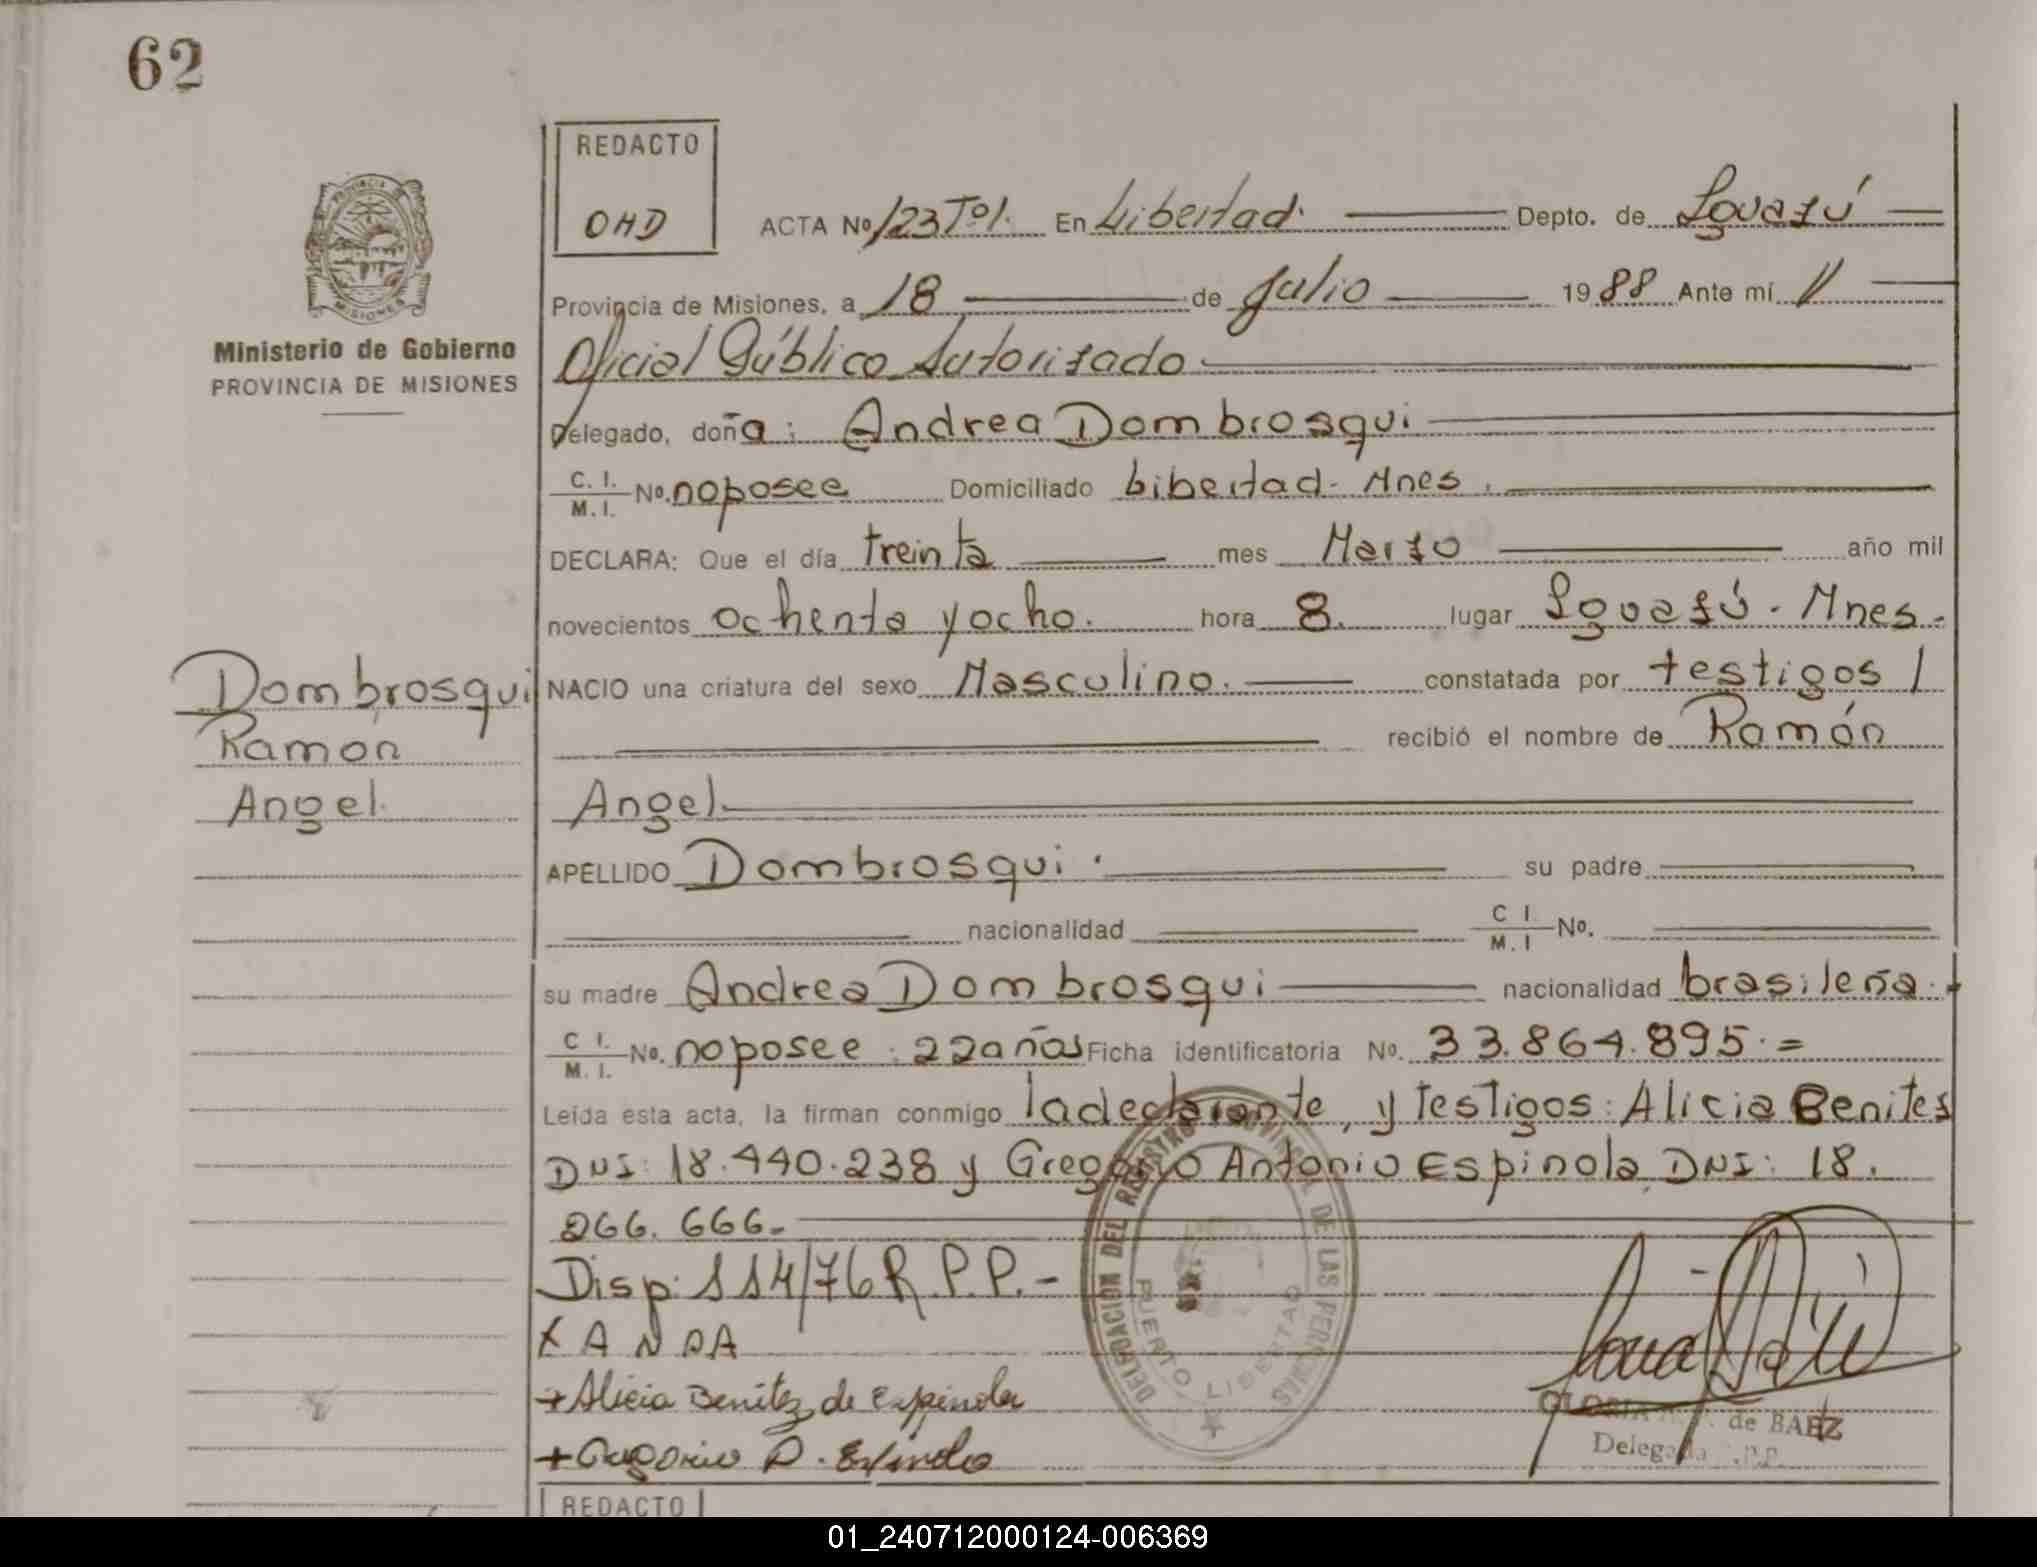 62
REDACTO
OHD
ACTA Nº 123 Tº1. En Libertad. Depto. de Iguazú
Provincia de Misiones, a 18 de Julio 1988 Ante mí //
Oficial Público Autorizado
Ministerio de Gobierno
PROVINCIA DE MISIONES
Delegado, doña: Andrea Dombrosqui
C. I. / M. I. Nº. no posee Domiciliado Libertad - Mnes.
DECLARA: Que el día treinta mes Marzo año mil
novecientos ochenta y ocho. hora 8. lugar Iguazú - Mnes.
Dombrosqui
Ramon
Angel
NACIO una criatura del sexo Masculino. constatada por testigos /
recibió el nombre de Ramón
Angel
APELLIDO Dombrosqui. su padre
nacionalidad C I / M. I Nº.
su madre Andrea Dombrosqui nacionalidad brasileña.
C I. / M. I. Nº. no posee. 22 años Ficha identificatoria Nº. 33.864.895.=
Leída esta acta, la firman conmigo la declarante, y testigos: Alicia Benites
DNI: 18.440.238 y Gregorio Antonio Espinola DNI: 18.
266.666.-
Disp: 114/76 R.P.P.-
DELEGACION DEL REGISTRO PROVINCIAL DE LAS PERSONAS
PUERTO LIBERTAD
+ Alicia Benitez de Espinola
+ Gregorio A. Espinola
GLORIA de BAEZ
Delegada R.P.P.
REDACTO
01_240712000124-006369